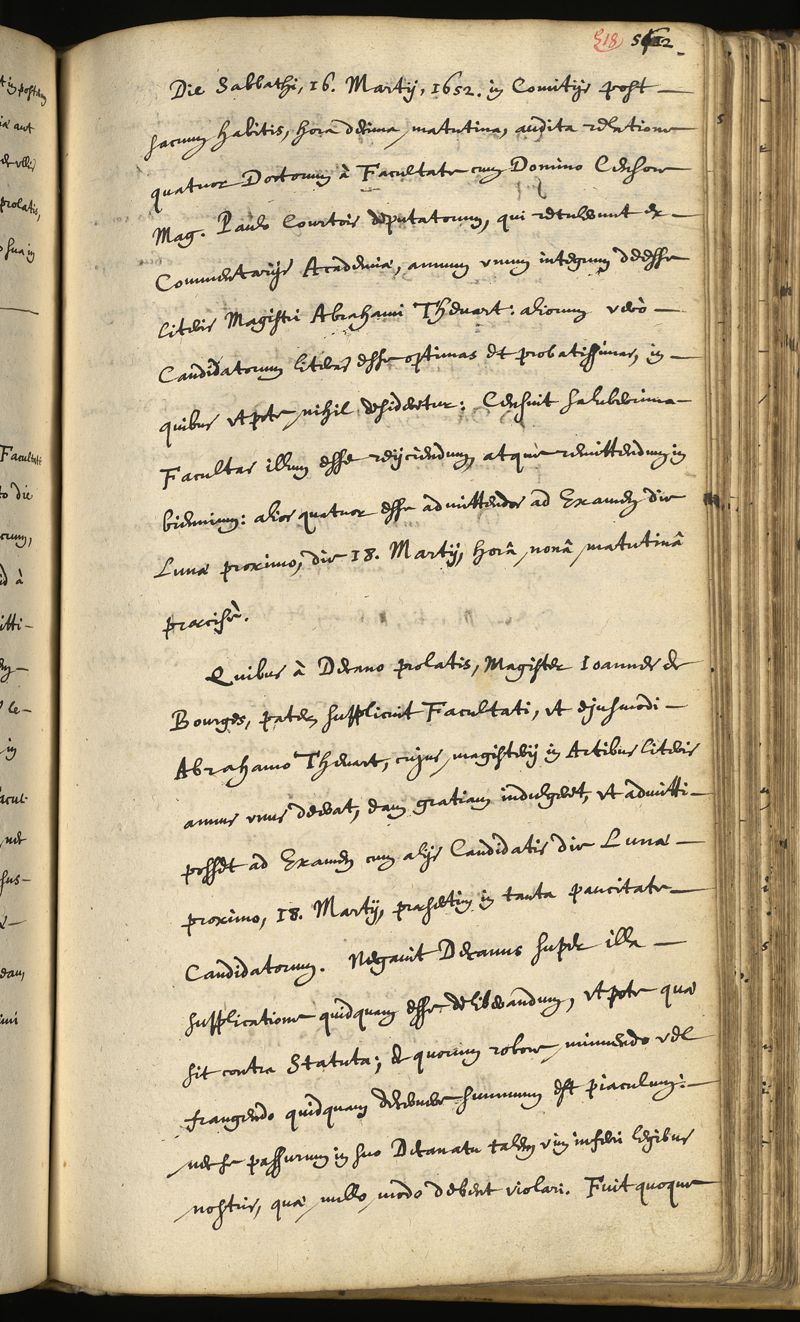 518 512
Die Sabbathi, 16. Martij, 1652. in Comitijs post
sacrum habitis, hora decima matutina, audita relatione
quatuor Doctorum à Facultate cum Domino Censore
Mag. Paulo Courtois deputatorum, qui retulerunt ex
Commentarijs Academiæ, annum unum integrum deesse
literis Magistri Abrahami Thevart: aliorum verò
Candidatorum literas esse optimas et probatissimas, in
quibus utpote nihil desideretur: Censuit saluberrima
Facultas illum esse reijciendum, atque remittendum in
biennium: alios quatuor esse admittendos ad Examen die
Lunæ proximo, die 18. Martij, horâ nonâ matutinâ
præcisè.
Quibus à Decano prolatis, Magister Ioannes de
Bourges, pater, supplicuit Facultati, ut ejusmodi
Abrahamo Thevart, cujus magisterij in Artibus literis
annus unus deerat, eam gratiam indulgeret, ut admitti
posset ad Examen cum alijs Candidatis die Lunæ
proximo, 18. Martij, præsertim in tanta paucitate
Candidatorum. Negavit Decanus super illa
supplicatione quidquam esse deliberandum, utpote quæ
sit contra Statuta; de quorum robore minuendo vel
frangendo quidquam decernere summum est piaculum:
nec se passurum in suo Decanatu talem vim inferri legibus
nostris, quæ nullo modo debent violari. Fuit quoque